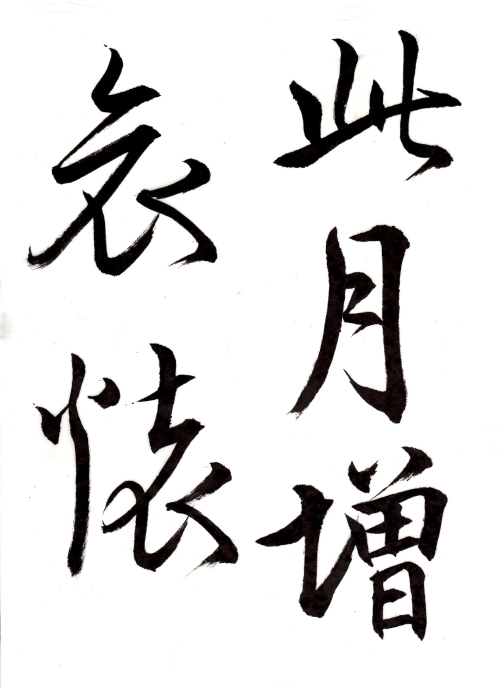 此月増
哀懐